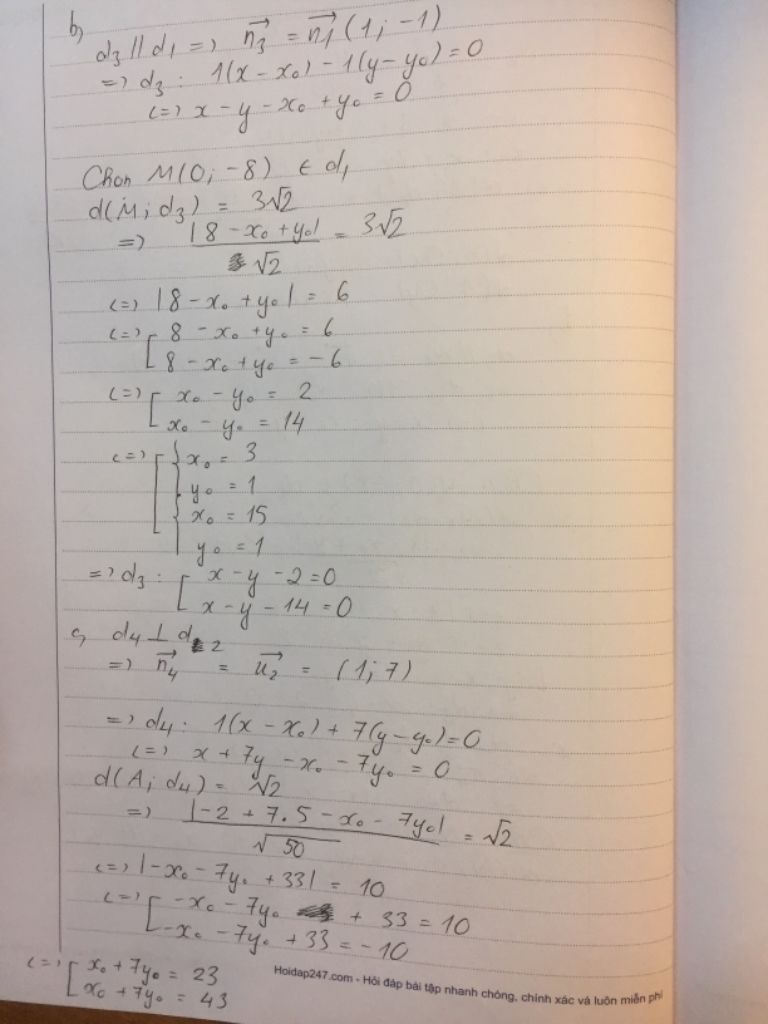 b,
d₃ // d₁ => n₃→ = n₁→ (1; -1)
=> d₃ : 1(x - x₀) - 1(y - y₀) = 0
<=> x - y - x₀ + y₀ = 0
Chọn M(0; -8) ∈ d₁
d(M; d₃) = 3√2
=> |8 - x₀ + y₀| / √2 = 3√2
<=> |8 - x₀ + y₀| = 6
<=> [ 8 - x₀ + y₀ = 6
8 - x₀ + y₀ = -6
<=> [ x₀ - y₀ = 2
x₀ - y₀ = 14
<=> [ { x₀ = 3
y₀ = 1
{ x₀ = 15
y₀ = 1
=> d₃ : [ x - y - 2 = 0
x - y - 14 = 0
c, d₄ ⊥ d₂
=> n₄→ = u₂→ = (1; 7)
=> d₄ : 1(x - x₀) + 7(y - y₀) = 0
<=> x + 7y - x₀ - 7y₀ = 0
d(A; d₄) = √2
=> |-2 + 7.5 - x₀ - 7y₀| / √50 = √2
<=> |-x₀ - 7y₀ + 33| = 10
<=> [ -x₀ - 7y₀ + 33 = 10
-x₀ - 7y₀ + 33 = -10
<=> [ x₀ + 7y₀ = 23
x₀ + 7y₀ = 43
Hoidap247.com - Hỏi đáp bài tập nhanh chóng, chính xác và luôn miễn phí